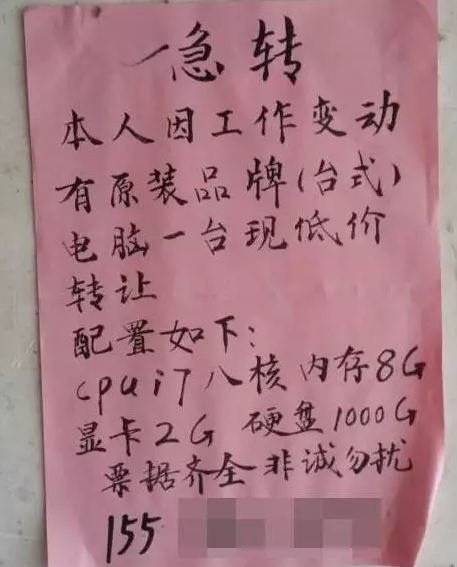 急转
本人因工作变动
有原装品牌(台式)
电脑一台现低价
转让
配置如下:
cpu i7 八核 内存8G
显卡2G 硬盘1000G
票据齐全 非诚勿扰
155